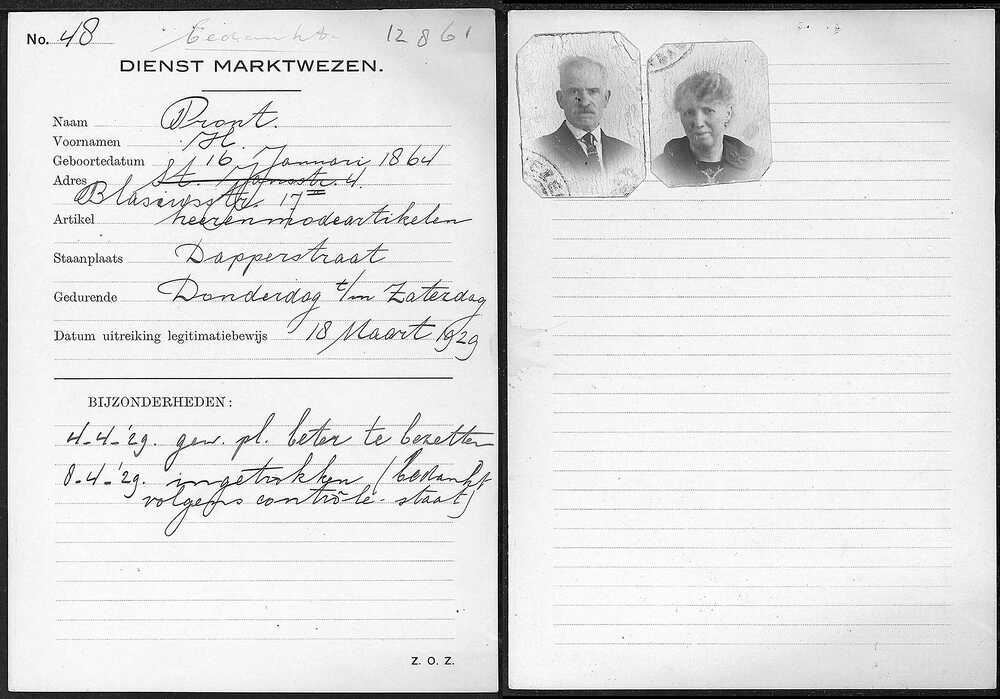 No. 48 Bedankt 12 8 6 1
DIENST MARKTWEZEN.
Naam Pront.
Voornamen H.
Geboortedatum 16 Januari 1864
Adres St. Jansstr. 4.
Blasiusstr. 17 II
Artikel heerenmodeartikelen
Staanplaats Dapperstraat
Gedurende Donderdag t/m Zaterdag
Datum uitreiking legitimatiebewijs 18 Maart 1929
BIJZONDERHEDEN:
4-4-'29. gew. pl. beter te bezetten
8-4-'29. ingetrokken (bedankt
volgens contrôle-staat)
Z. O. Z.